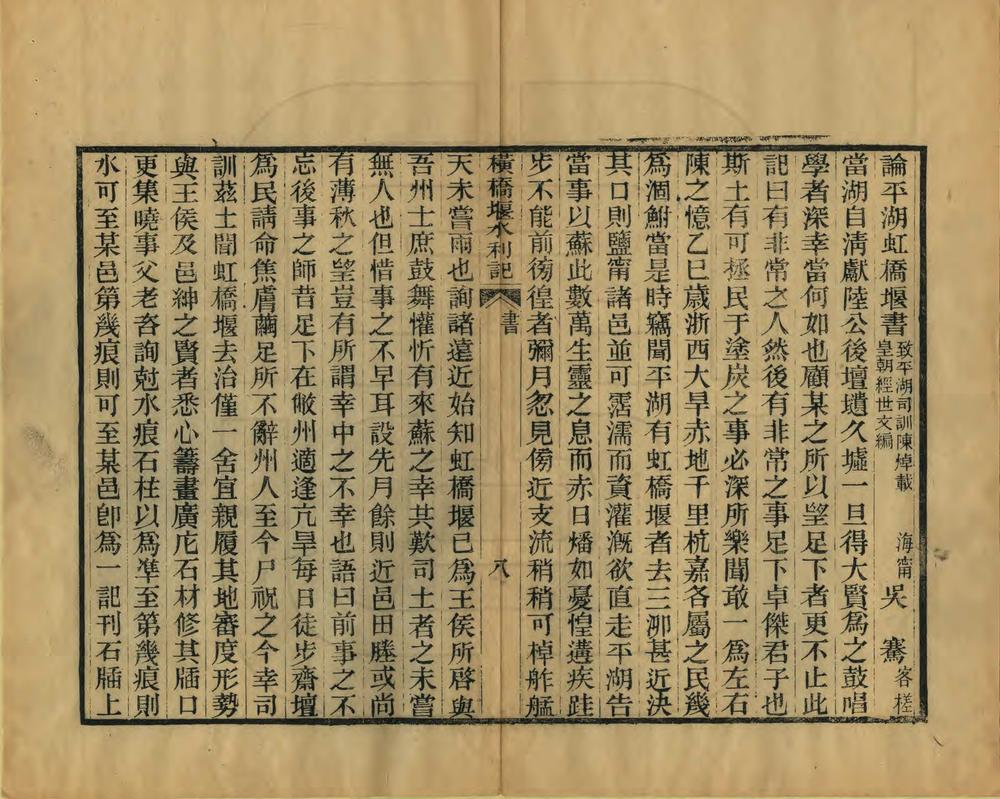 論平湖虹橋堰書 致平湖司訓陳焯載 皇朝經世文編 海甯 吳騫 客槎
當湖自淸獻陸公後壇壝久墟一旦得大賢爲之鼓唱
學者深幸當何如也顧某之所以望足下者更不止此
記曰有非常之人然後有非常之事足下卓傑君子也
斯土有可拯民于塗炭之事必深所樂聞敢一爲左右
陳之憶乙巳歲浙西大旱赤地千里杭嘉各屬之民幾
爲涸鮒當是時竊聞平湖有虹橋堰者去三泖甚近決
其口則鹽甯諸邑並可霑濡而資灌漑欲直走平湖告
當事以蘇此數萬生靈之息而赤日燔如憂惶遘疾跬
步不能前徬徨者彌月忽見傍近支流稍稍可棹舴艋
橫橋堰水利記 書 八
天未嘗雨也詢諸遠近始知虹橋堰已爲王侯所啓與
吾州士庶鼓舞懽忻有來蘇之幸共歎司土者之未嘗
無人也但惜事之不早耳設先月餘則近邑田塍或尚
有薄秋之望豈有所謂幸中之不幸也語曰前事之不
忘後事之師昔足下在敝州適逢亢旱每日徒步齋壇
爲民請命焦膚繭足所不辭州人至今尸祝之今幸司
訓茲土聞虹橋堰去治僅一舍宜親履其地審度形勢
與王侯及邑紳之賢者悉心籌畫廣庀石材修其牐口
更集曉事父老咨詢尅水痕石柱以爲準至第幾痕則
水可至某邑第幾痕則可至某邑卽爲一記刊石牐上